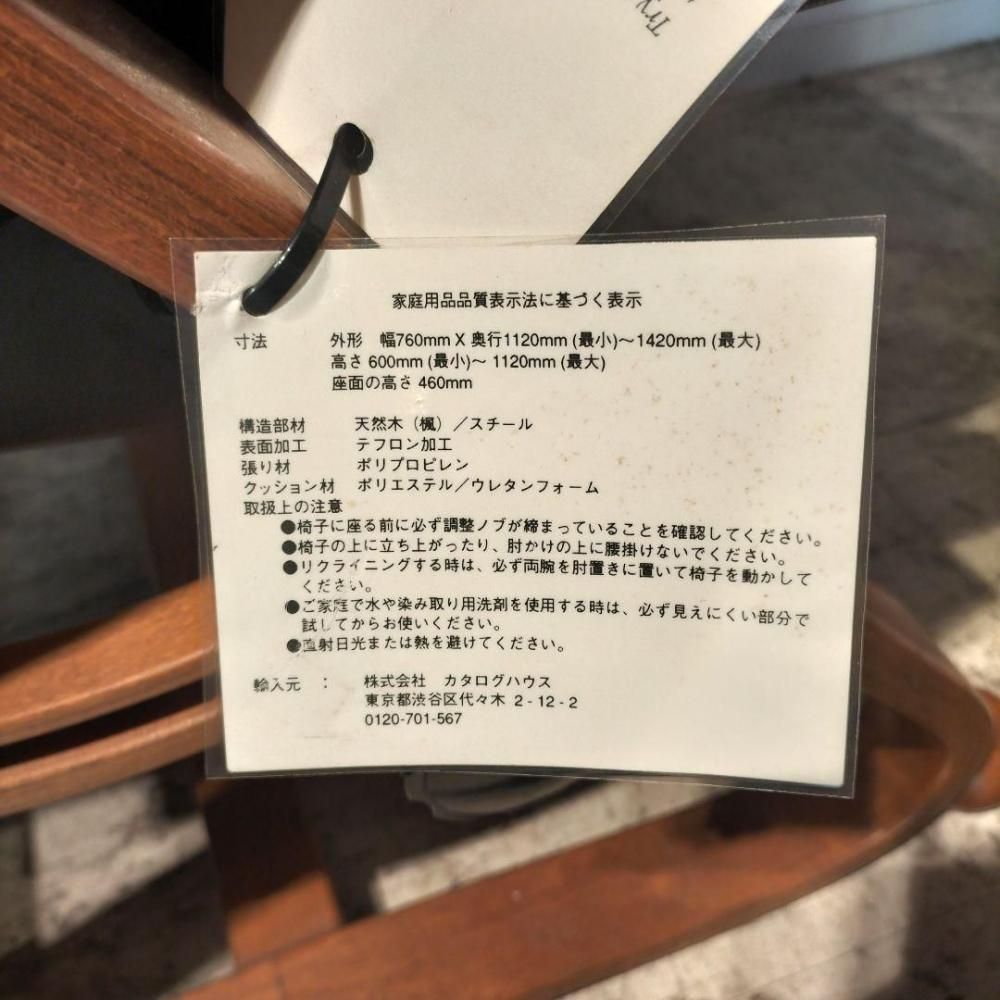 家庭用品品質表示法に基づく表示
寸法 外形 幅760mm X 奥行1120mm (最小)～1420mm (最大)
高さ 600mm (最小)～ 1120mm (最大)
座面の高さ 460mm
構造部材 天然木（楓）／スチール
表面加工 テフロン加工
張り材 ポリプロピレン
クッション材 ポリエステル／ウレタンフォーム
取扱上の注意
●椅子に座る前に必ず調整ノブが締まっていることを確認してください。
●椅子の上に立ち上がったり、肘かけの上に腰掛けないでください。
●リクライニングする時は、必ず両腕を肘置きに置いて椅子を動かして
ください。
●ご家庭で水や染み取り用洗剤を使用する時は、必ず見えにくい部分で
試してからお使いください。
●直射日光または熱を避けてください。
輸入元 : 株式会社 カタログハウス
東京都渋谷区代々木 2 - 12 - 2
0120-701-567